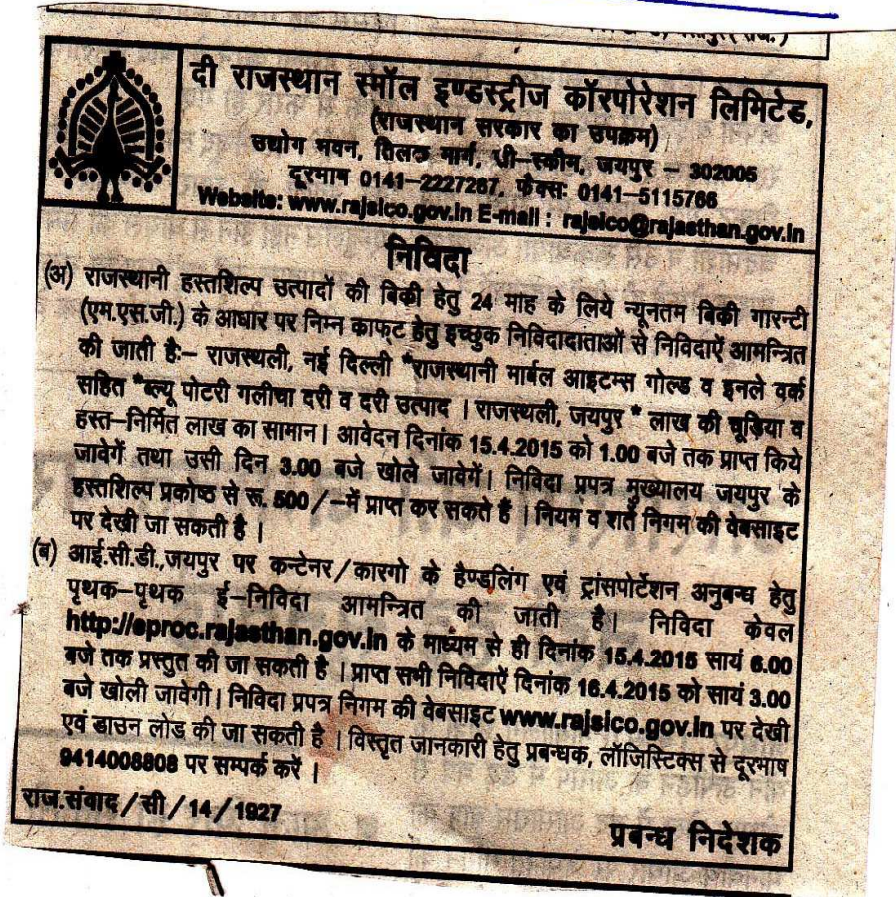 दी राजस्थान स्मॉल इण्डस्ट्रीज कॉरपोरेशन लिमिटेड,
(राजस्थान सरकार का उपक्रम)
उद्योग भवन, तिलक मार्ग, सी–स्कीम, जयपुर – 302005
दूरभाष 0141–2227267, फैक्सः 0141–5115766
Website: www.rajsico.gov.in E-mail : rajsico@rajasthan.gov.in
निविदा
(अ) राजस्थानी हस्तशिल्प उत्पादों की बिकी हेतु 24 माह के लिये न्यूनतम बिकी गारन्टी
(एम.एस.जी.) के आधार पर निम्न काफ्ट हेतु इच्छुक निविदादाताओं से निविदाऐं आमन्त्रित
की जाती हैः– राजस्थली, नई दिल्ली *राजस्थानी मार्बल आइटम्स गोल्ड व इनले वर्क
सहित *ब्ल्यू पोटरी गलीचा दरी व दरी उत्पाद | राजस्थली, जयपुर * लाख की चूड़िया व
हस्त–निर्मित लाख का सामान। आवेदन दिनांक 15.4.2015 को 1.00 बजे तक प्राप्त किये
जावेगें तथा उसी दिन 3.00 बजे खोले जावेगें। निविदा प्रपत्र मुख्यालय जयपुर के
हस्तशिल्प प्रकोष्ठ से रू. 500/–में प्राप्त कर सकते हैं | नियम व शर्ते निगम की वेबसाइट
पर देखी जा सकती है |
(ब) आई.सी.डी.,जयपुर पर कन्टेनर/कारगो के हैण्डलिंग एवं ट्रांसपोर्टेशन अनुबन्ध हेतु
पृथक–पृथक ई–निविदा आमन्त्रित की जाती है। निविदा केवल
http://eproc.rajasthan.gov.in के माध्यम से ही दिनांक 15.4.2015 सायं 6.00
बजे तक प्रस्तुत की जा सकती है | प्राप्त सभी निविदाऐं दिनांक 16.4.2015 को सायं 3.00
बजे खोली जावेगी। निविदा प्रपत्र निगम की वेबसाइट www.rajsico.gov.in पर देखी
एवं डाउन लोड की जा सकती है | विस्तृत जानकारी हेतु प्रबन्धक, लॉजिस्टिक्स से दूरभाष
9414008808 पर सम्पर्क करें |
राज.संवाद/सी/14/1927
प्रबन्ध निदेशक